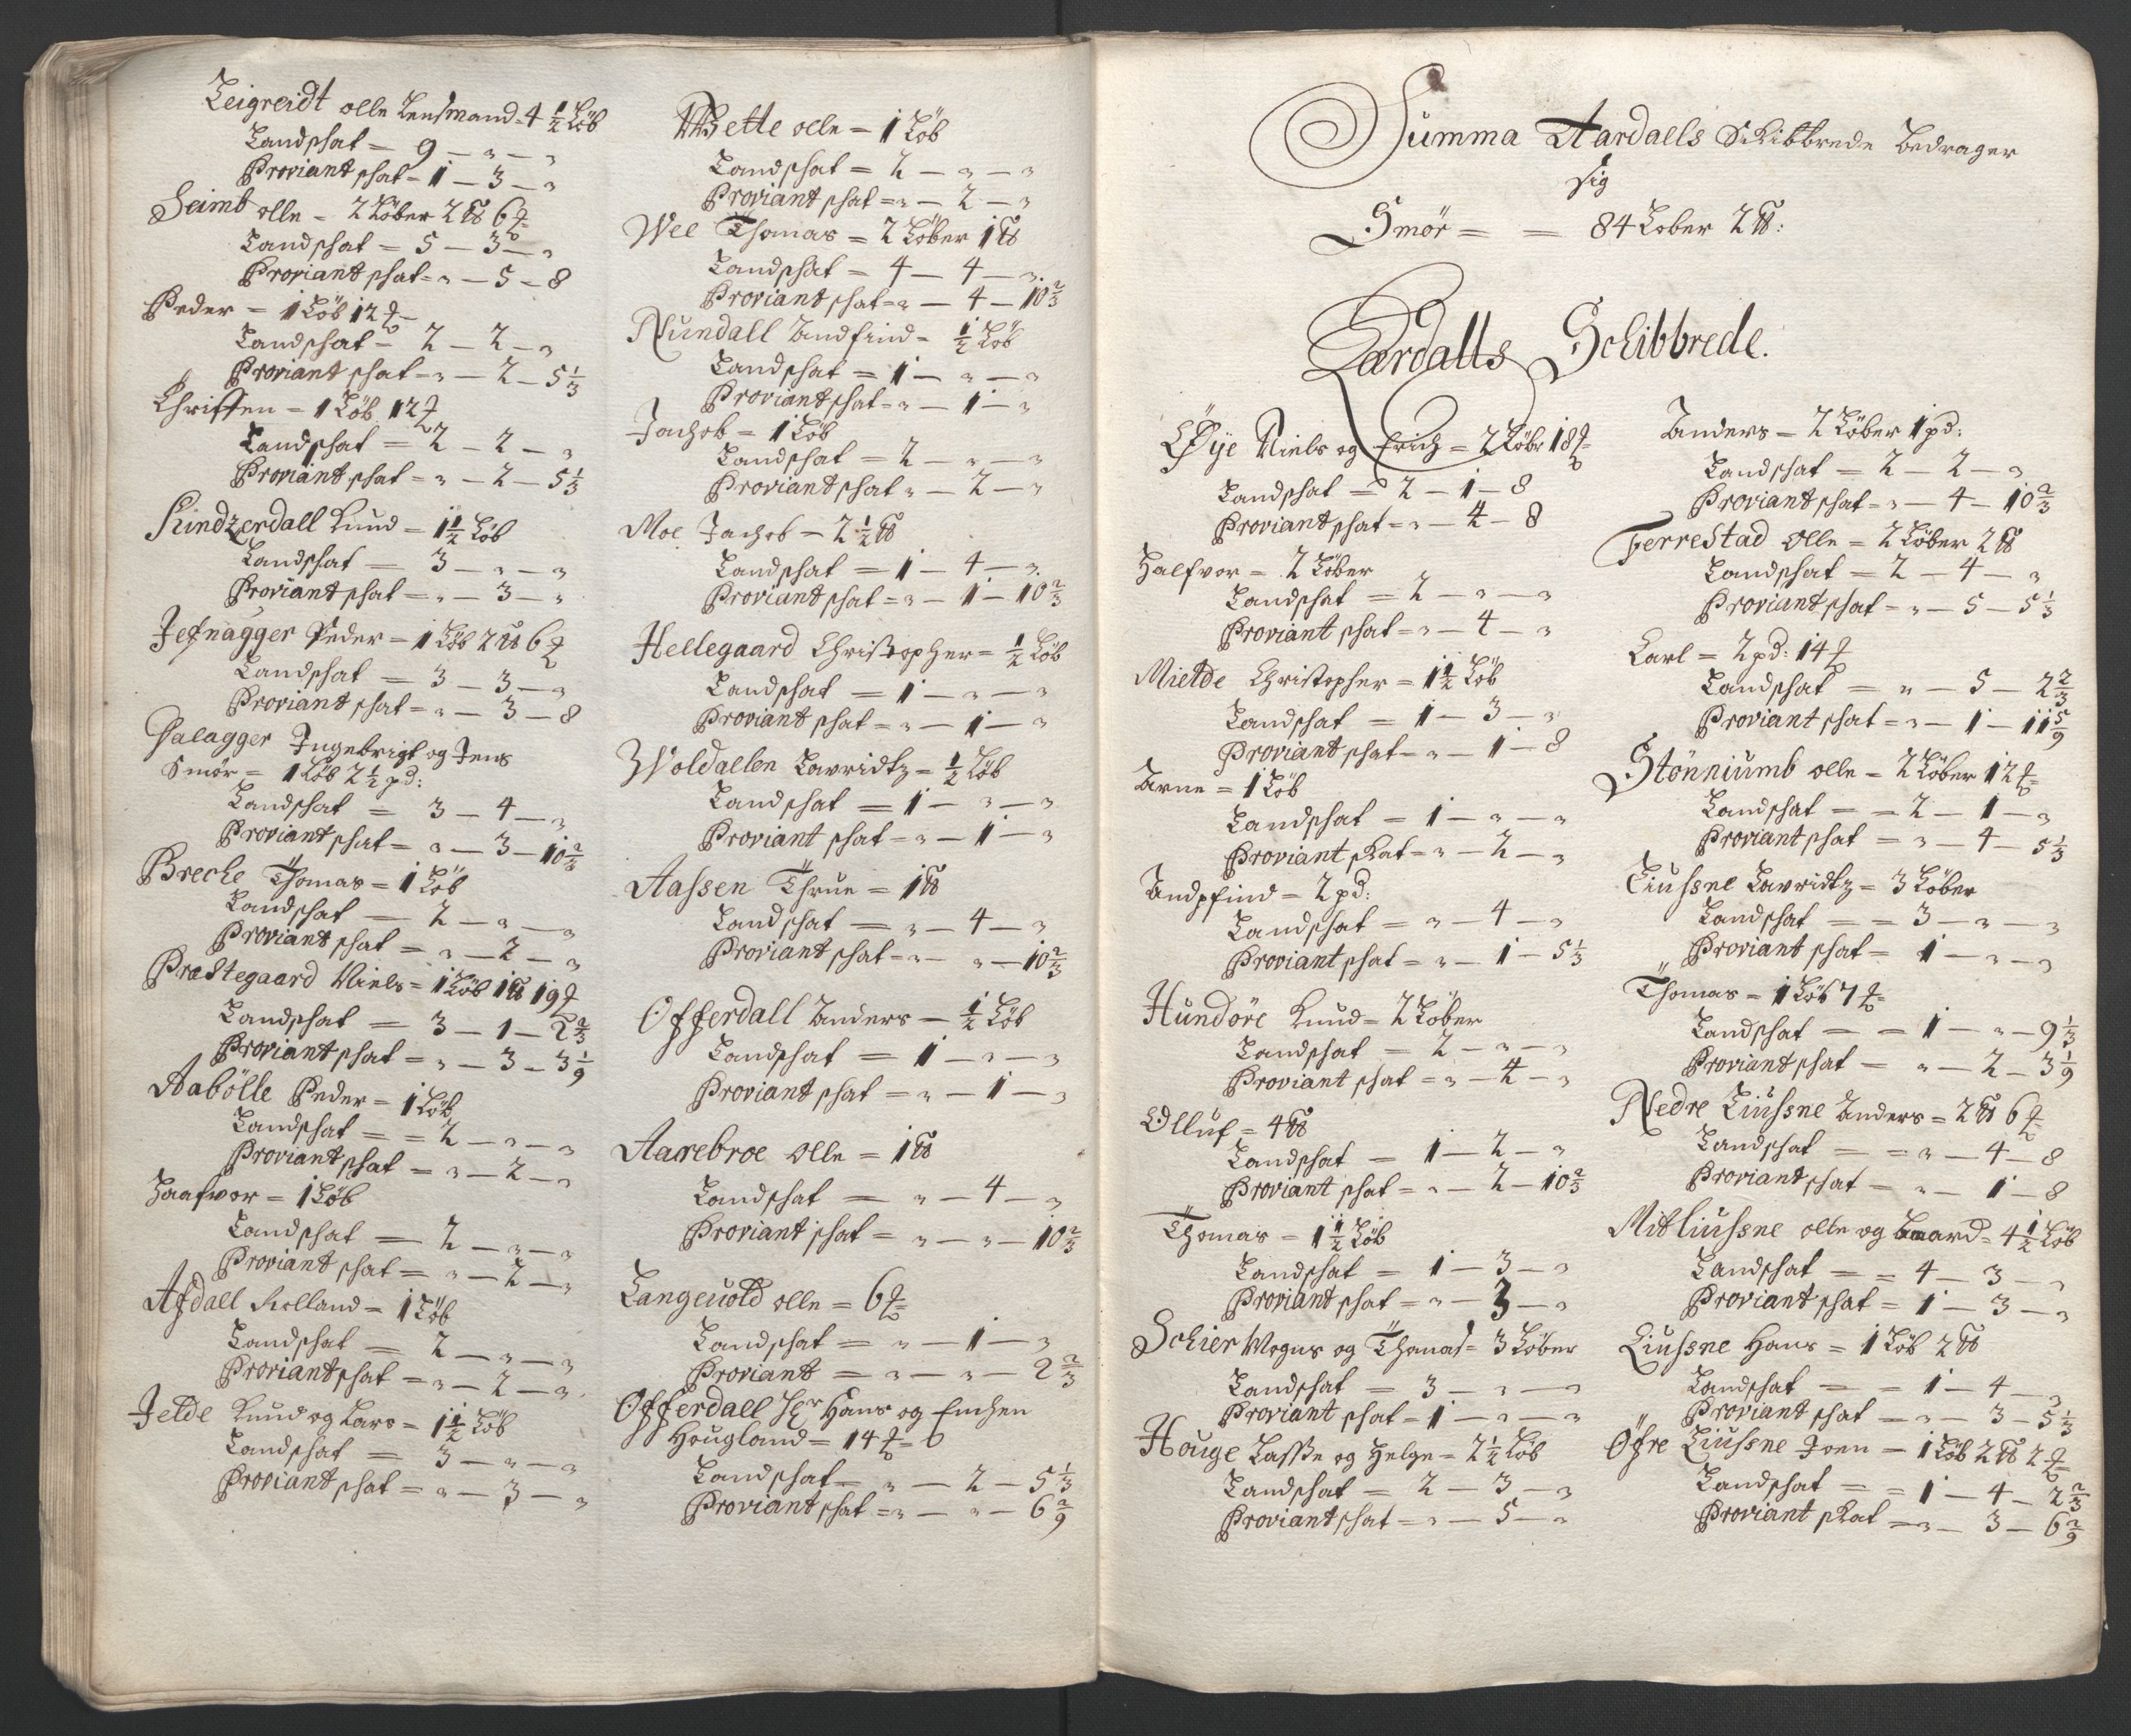 Leigreidt olle Lensmand = 4 1/2 Løb
Landschat = 9 — " — "
Proviantschat = 1 — 3 — "
Seimb olle = 2 Løber 2 pd 6 ℔
Landschat = 5 — 3 — "
Proviantschat = " — 5 — 8
Peder = 1 Løb 12 ℔
Landschat = 2 — 2 — "
Proviantschat = " — 2 — 5 1/3
Christen = 1 Løb 12 ℔
Landschat = 2 — 2 — "
Proviantschat = " — 2 — 5 1/3
Kindzerdall Knud = 1 1/2 Løb
Landschat = 3 — " — "
Proviantschat = " — 3 — "
Jefnagger Peder = 1 Løb 2 pd 6 ℔
Landschat = 3 — 3 — "
Proviantschat = " — 3 — 8
Galagger Ingebrigt og Jens
Smör = 1 Løb 2 1/2 pd:
Landschat = 3 — 4 — "
Proviantschat = " — 3 — 10 2/3
Breche Thomas = 1 Løb
Landschat = 2 — " — "
Proviantschat = " — 2 — "
Præstegaard Niels = 1 Løb 1 pd 19 ℔
Landschat = 3 — 1 — 2 2/3
Proviantschat = " — 3 — 3 1/9
Aabölle Peder = 1 Løb
Landschat = = 2 — " — "
Proviantschat = " — 2 — "
Haafvor = 1 Løb
Landschat = 2 — " — "
Proviantschat = " — 2 — "
Afdall Rolland = 1 Løb
Landschat = 2 — " — "
Proviantschat = " — 2 — "
Jelde Knud og Lars = 1 1/2 Løb
Landschat = 3 — " — "
Proviantschat = " — 3 — "
Wette olle = 1 Løb
Landschat = 2 — " — "
Proviantschat = " — 2 — "
Wee Thomas = 2 Løber 1 pd
Landschat = 4 — 4 — "
Proviantschat = " — 4 — 10 2/3
Nundall Andfind = 1/2 Løb
Landschat = 1 — " — "
Proviantschat = " — 1 — "
Jachob = 1 Løb
Landschat = 2 — " — "
Proviantschat = " — 2 — "
Moe Jachob = 2 1/2 pd
Landschat = 1 — 4 — "
Proviantschat = " — 1 — 10 2/3
Hellegaard Christopher = 1/2 Løb
Landschat = 1 — " — "
Proviantschat = " — 1 — "
Woldallen Lavridtz = 1/2 Løb
Landschat = 1 — " — "
Proviantschat = " — 1 — "
Aassen Thrue = 1 pd
Landschat = " — 4 — "
Proviantschat = " — " — 10 2/3
Offerdall Anders = 1/2 Løb
Landschat = 1 — " — "
Proviantschat = " — 1 — "
Aarebroe olle = 1 pd
Landschat = " — 4 — "
Proviantschat = " — " — 10 2/3
Langeuold olle = 6 ℔
Landschat = " — 1 — "
Proviant = " — " — 2 2/3
Offerdall Hr Hans og Enchen
Hougland = 14 ℔
Landschat = " — 2 — 5 1/3
Proviantschat = " — " — 6 2/9
Summa Aardalls Schibbrede Bedrager
sig
Smör = = 84 Lober 2 pd:
Lærdalls Schibbrede.
Øÿe Niels og Erich = 2 Løbr 18 ℔
Landschat = 2 — 1 — 8
Proviantschat = " — 4 — 8
Halfvor = 2 Løber
Landschat = 2 — " — "
Proviantschat = " — 4 — "
Mielde Christopher = 1 1/2 Løb
Landschat = 1 — 3 — "
Proviantschat = " — 1 — 8
Arne = 1 Løb
Landschat = 1 — " — "
Proviantschat = " — 2 — "
Andpfind = 2 pd:
Landschat = " — 4 — "
Proviantschat = " — 1 — 5 1/3
Hundöre Knud = 2 Løber
Landschat = 2 — " — "
Proviantschat = " — 4 — "
Olluf = 4 pd
Landschat = 1 — 2 — "
Proviantschat = " — 2 — 10 2/3
Thomas = 1 1/2 Løb
Landschat = 1 — 3 — "
Proviantschat = " — 3 — "
Schier Mogns og Thomas = 3 Løber
Landschat = 3 — " — "
Proviantschat = 1 — " — "
Houge Lasse og Helge = 2 1/2 Løb
Landschat = 2 — 3 — "
Proviantschat = " — 5 — "
Anders = 2 Løber 1 pd:
Landschat = 2 — 2 — "
Proviantschat = " — 4 — 10 2/3
Ferrestad Olle = 2 Løber 2 pd
Landschat = 2 — 4 — "
Proviantschat = " — 5 — 5 1/3
Carl = 2 pd: 14 ℔
Landschat = " — 5 — 2 2/3
Proviantschat = " — 1 — 11 5/9
Stönniumb olle = 2 Løber 12 ℔
Landschat = = 2 — 1 — "
Proviantschat = " — 4 — 5 1/3
Liussne Lavridtz = 3 Løber
Landschat = = 3 — " — "
Proviantschat = 1 — " — "
Thomas = 1 Løb 7 ℔
Landschat = = 1 — " — 9 1/3
Proviantschat = " — 2 — 3 1/9
Nedre Liussne Anders = 2 pd 6 ℔
Landschat = = " — 4 — 8
Proviantschat = " — 1 — 8
Mitliussne olle og Baard = 4 1/2 Løb
Landschat = = 4 — 3 — "
Proviantschat = 1 — 3 — "
Liussne Hans = 1 Løb 2 pd
Landschat = = 1 — 4 — "
Proviantschat = " — 3 — 5 1/3
Øfre Liussne Joen = 1 Løb 2 pd 2 ℔
Landschat = = 1 — 4 — 2 2/3
Proviantschat = " — 3 — 6 2/9